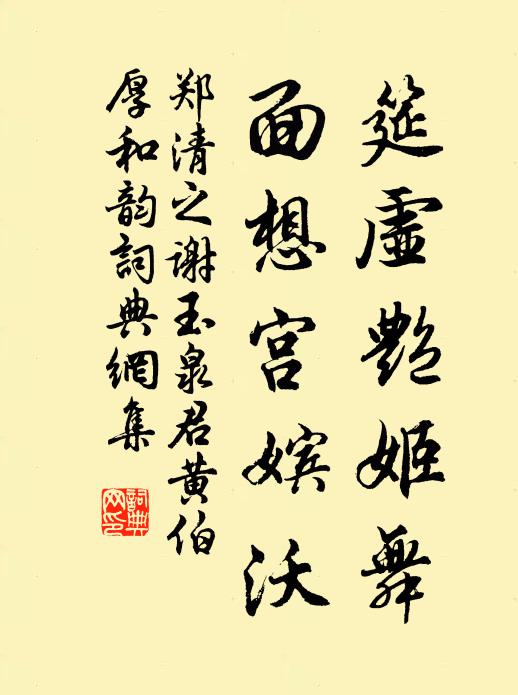 筵虚艶姬舞
面想宫嫔沃
郑清之谢玉泉君黄伯
厚和韵詞典網集
詞典网印